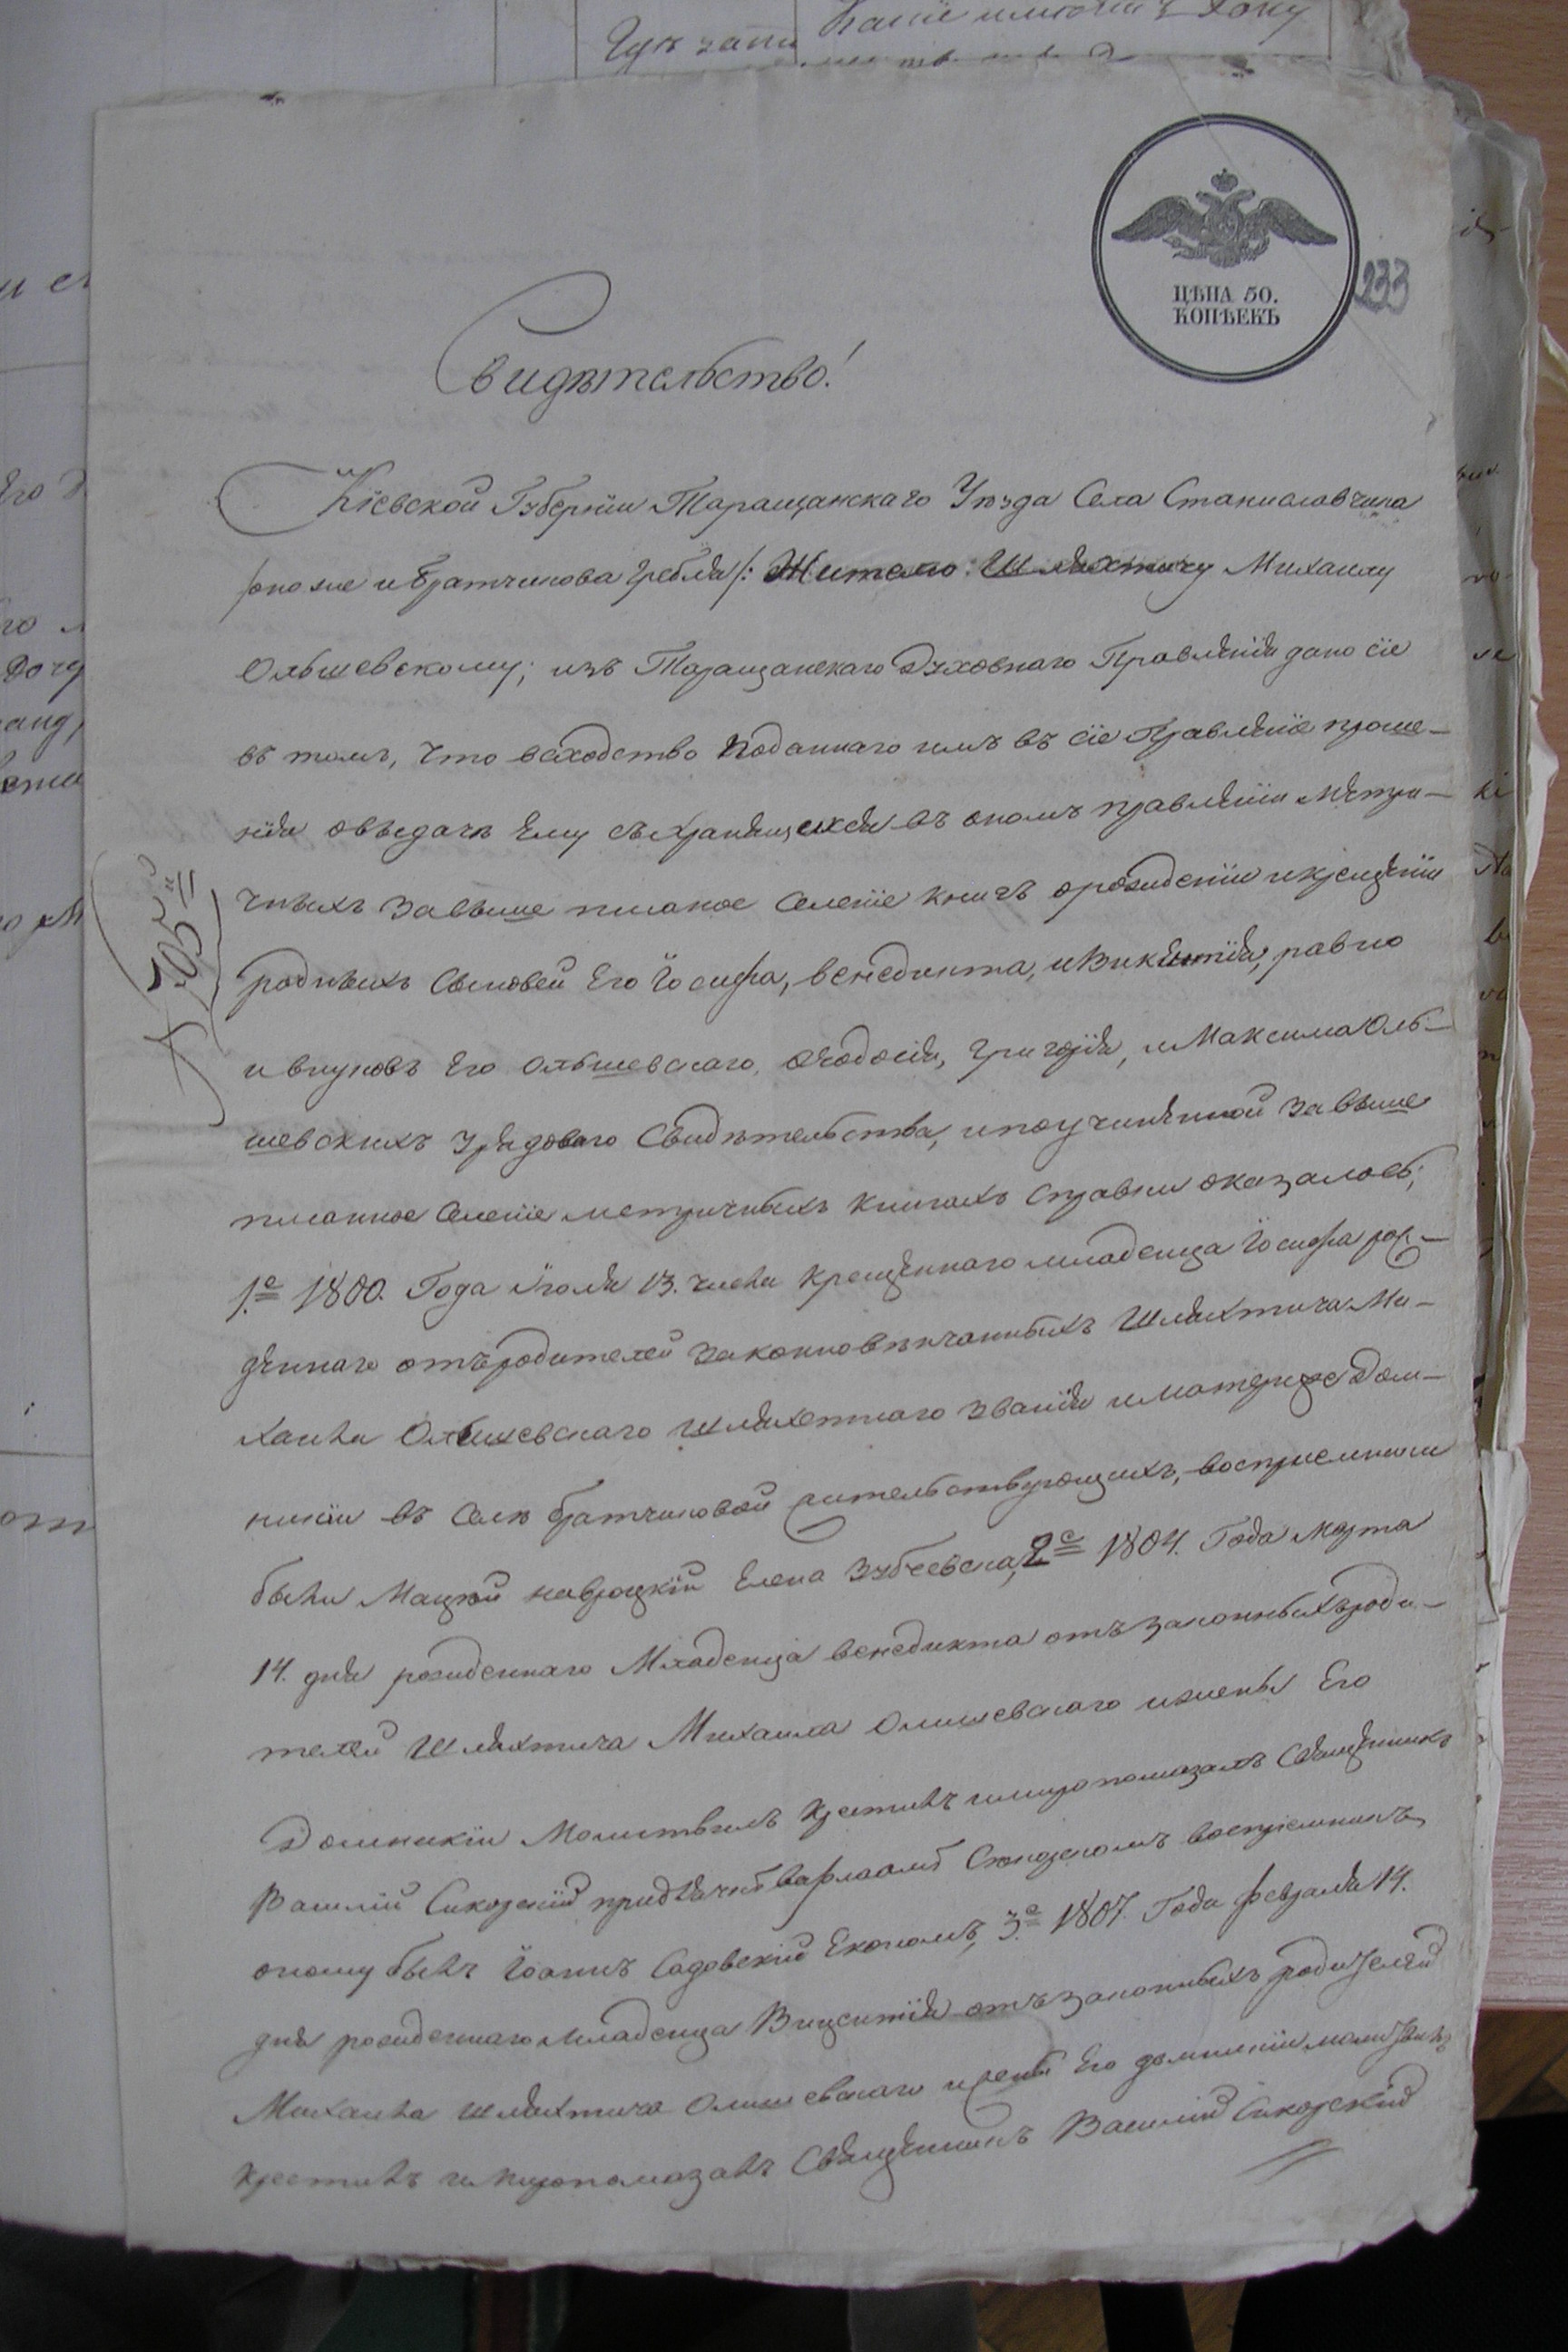 ЦѢНА 50.
КОПѢЕКЪ
233
Свидѣтельство!
Кіевской Губерніи Таращанскаго Уѣзда Села Станиславчика
/оно же и Братчикова Гребля/: Жителю: Шляхтичу Михаилу
Ольшевскому; изъ Таращанскаго Духовнаго Правленія дано сіе
въ томъ, что въсходство поданнаго имъ въ сіе Правленіе проше-
нія овыдачѣ Ему съхранящихся въ ономъ правленіи метри-
чныхъ завыше писаное Селеніе книгъ орождении икрещеніи
родныхъ Сыновей Его Іосифа, венедикта, иВикентія, равно
и внуковъ Его Ольшевскаго, Ѳеодосія, Григорія, иМаксима Оль-
шевскихъ урядоваго Свидѣтельства, и поучиненной завыше
писанное Селеніе метричныхъ книгахъ справки оказалось;
1.е 1800. Года Іюля 13. числа крещеннаго младенца Іосифа рож-
деннаго отъродителей законновѣнчанныхъ Шляхтича Ми-
хаила Ольшевскаго шляхетнаго званія иматери Дом-
никіи въ Селѣ братчиковой жительствующихъ, восприемники
были Мацѣй навроцкій Елена Зубчевска, 2.е 1804. Года марта
14. дня рожденнаго Младенца венедикта отъ законныхъ роди-
телей Шляхтича Михаила Олишевскаго ижены Его
Домникіи Молитвилъ крестилъ имиропомазалъ Священникъ
Василій Сикорскій придьячкѣ варлаамѣ Сикорскомъ воспріемникъ
оному былъ Іоаннъ Садовскій Економъ, 3.е 1807. Года февраля 14.
дня рожденнаго младенца Вицентія отъ законныхъ родителей
Михаила шляхтича Олишевскаго ижены Его домникіи молитвилъ
крестилъ имиропомазалъ Священникъ Василій Сикорскій